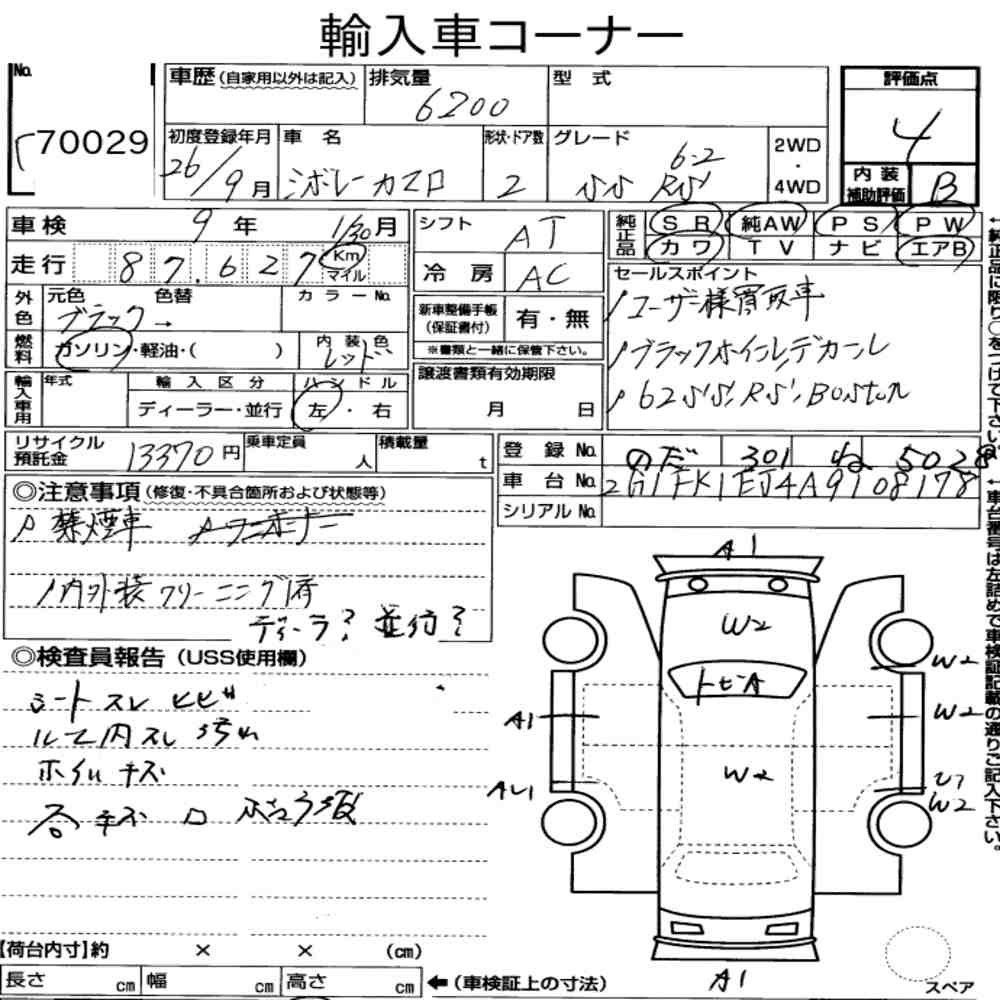 輸入車コーナー
No.
70029
車歴(自家用以外は記入)
排気量
6200
型 式
評価点
4
初度登録年月
26/9月
車 名
シボレーカマロ
形状・ドア数
2
グレード
6.2
SS RS
2WD
・
4WD
内 装
補助評価
B
車検 9年 1/30月
シフト
AT
純正品
SR 純AW PS PW
カワ TV ナビ エアB
走行 87.627 Km
マイル
冷 房
AC
セールスポイント
ユーザー様買取車
ブラックホイールデカール
62SS, RS, Boston
外色
元色 色替
ブラック→
カラーNo.
新車整備手帳
(保証書付)
有・無
※書類と一緒に保管下さい。
燃料
ガソリン・軽油・( )
内 装 色
レッド
輸入車用
年式
輸 入 区 分
ディーラー・並行
ハ ン ド ル
左・右
譲渡書類有効期限
月 日
リサイクル
預託金
13370円
乗車定員
人
積載量
t
登 録 No.
のだ 301 ね 5028
車 台 No.
2G1FK1EJ4A9108178
シリアルNo.
◎注意事項(修復・不具合箇所および状態等)
禁煙車 ワンオーナー
内外装クリーニング済
ディーラ? 並行?
◎検査員報告(USS使用欄)
シートスレ ヒビ
ホイルキズ
A1
W2
トビA
W2
A1
W2
W2
AU1
W2
A1
スペア
【荷台内寸】約 × × (cm)
長さ cm 幅 cm 高さ cm
←(車検証上の寸法)
←純正品に限り○をつけて下さい。
←車台番号は左詰めで車検証記載の通りご記入下さい。